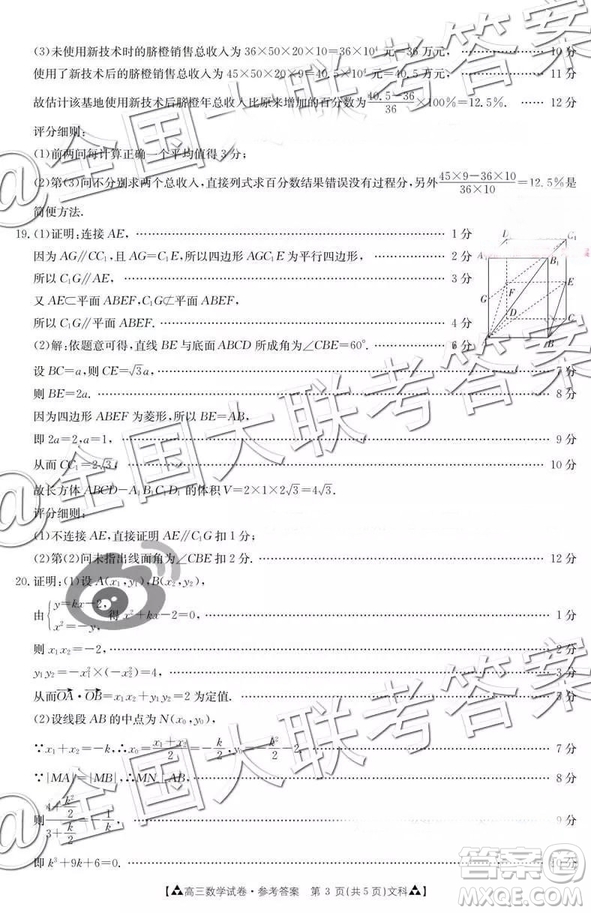 (3)未使用新技术时的脐橙销售总收入为36×50×20×10=36×10⁴元=36万元, 10分
使用了新技术后的脐橙销售总收入为45×50×20×9=40.5×10⁴元=40.5万元, 11分
故估计该基地使用新技术后脐橙年总收入比原来增加的百分数为(40.5-36)/36×100%=12.5%. 12分
评分细则:
(1)前两问每计算正确一个平均值得3分;
(2)第(3)问不分别求两个总收入,直接列式求百分数结果错误没有过程分,另外(45×9-36×10)/(36×10)=12.5%是
简便方法.
19.(1)证明:连接AE, 1分
因为AG∥CC₁,且AG=C₁E,所以四边形AGC₁E为平行四边形, 2分
所以C₁G∥AE. 3分
又AE⊂平面ABEF,C₁G⊄平面ABEF,
所以C₁G∥平面ABEF. 4分
(2)解:依题意可得,直线BE与底面ABCD所成角为∠CBE=60°. 6分
设BC=a,则CE=√3a, 7分
则BE=2a. 8分
因为四边形ABEF为菱形,所以BE=AB,
即2a=2,a=1. 9分
从而CC₁=2√3, 10分
故长方体ABCD-A₁B₁C₁D₁的体积V=2×1×2√3=4√3.
评分细则:
(1)不连接AE,直接证明AE∥C₁G扣1分;
(2)第(2)问未指出线面角为∠CBE扣2分. 12分
20.证明:(1)设A(x₁,y₁),B(x₂,y₂),
由{y=kx-2, x²=-y, 得x²+kx-2=0, 1分
则x₁x₂=-2, 2分
y₁y₂=-x₁²×(-x₂²)=4, 3分
从而OA·OB=x₁x₂+y₁y₂=2为定值.
(2)设线段AB的中点为N(x₀,y₀),
∵x₁+x₂=-k,∴x₀=(x₁+x₂)/2=-k/2, 7分
∵|MA|=|MB|,∴MN⊥AB, 8分
9分
即k³+9k+6=0. 10分
高三数学试卷·参考答案 第3页(共5页)文科
@全国大联考答案
@全国大联考答案